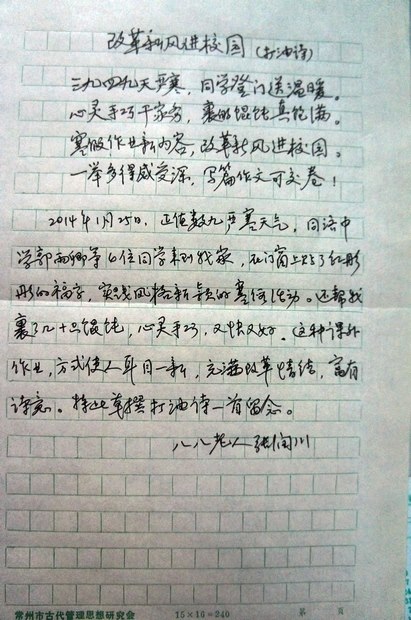 改革新风进校园（打油诗）
三九四九天严寒，同学登门送温暖。
心灵手巧干家务，裹的馄饨真饱满。
寒假作业新内容，改革新风进校园。
一举多得感受深，写篇作文可交卷！
2014年1月25日，正值数九严寒天气，同济中
学郭雨卿等6位同学来到我家，在门窗上贴了红彤
彤的福字，实践风格新颖的寒假活动。还帮我
裹了几十只馄饨，心灵手巧，又快又好。这种课外
作业，方式使人耳目一新，充满改革情结，富有
诗意。特此草撰打油诗一首留念。
八八老人张润川
常州市古代管理思想研究会 15×16=240 第 页